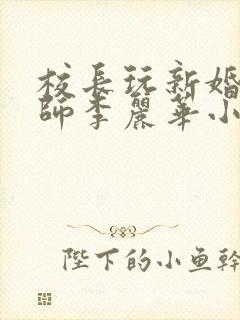 校長玩新婚
師李麗華小
陛下的小鱼幹